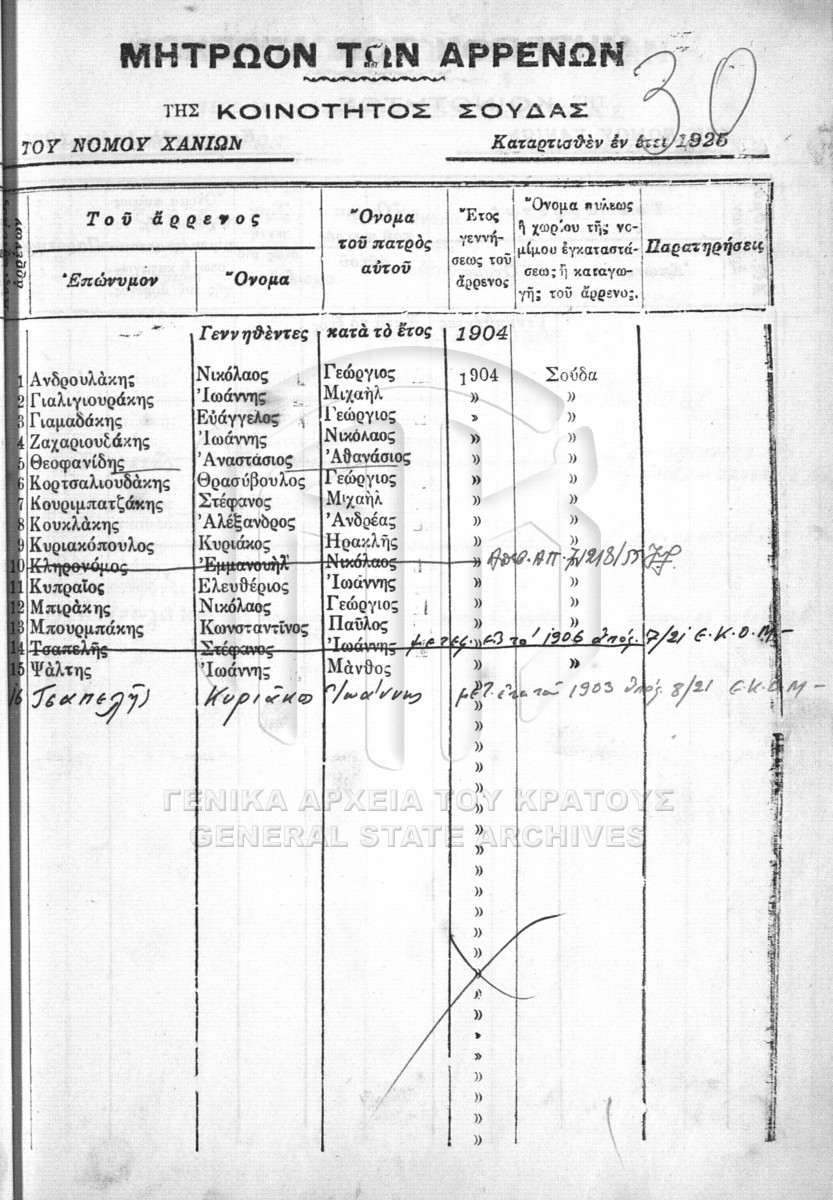 ΜΗΤΡΩΟΝ ΤΩΝ ΑΡΡΕΝΩΝ
30
ΤΗΣ ΚΟΙΝΟΤΗΤΟΣ ΣΟΥΔΑΣ
ΤΟΥ ΝΟΜΟΥ ΧΑΝΙΩΝ Καταρτισθὲν ἐν ἔτει 1925
Τοῦ ἄρρενος
Ἐπώνυμον Ὄνομα
Ὄνομα
τοῦ πατρὸς
αὐτοῦ
Ἔτος
γεννή-
σεως τοῦ
ἄρρενος
Ὄνομα πόλεως
ἢ χωρίου τῆς νο-
μίμου ἐγκαταστά-
σεως ἢ καταγω-
γῆς τοῦ ἄρρενος.
Παρατηρήσεις
Γεννηθέντες κατὰ τὸ ἔτος 1904
1 Ἀνδρουλάκης Νικόλαος Γεώργιος 1904 Σούδα
2 Γιαλιγιουράκης Ἰωάννης Μιχαὴλ » »
3 Γιαμαδάκης Εὐάγγελος Γεώργιος » »
4 Ζαχαριουδάκης Ἰωάννης Νικόλαος » »
5 Θεοφανίδης Ἀναστάσιος Ἀθανάσιος » »
6 Κορτσαλιουδάκης Θρασύβουλος Γεώργιος » »
7 Κουριμπατζάκης Στέφανος Μιχαὴλ » »
8 Κουκλάκης Ἀλέξανδρος Ἀνδρέας » »
9 Κυριακόπουλος Κυριάκος Ἡρακλῆς » »
10 Κληρονόμος Ἐμμανουὴλ Νικόλαος »
11 Κυπραῖος Ἐλευθέριος Ἰωάννης » »
12 Μπιράκης Νικόλαος Γεώργιος » »
13 Μπουρμπάκης Κωνσταντῖνος Παῦλος » »
14 Τσαπελῆς Στέφανος Ἰωάννης 1906 ἀπόφ. 7/21 Ε.Κ.Ο.Μ-
15 Ψάλτης Ἰωάννης Μάνθος » »
16 Τσαπελῆς Κυριάκος Ἰωάννης 1903 8/21 Ε.Κ.Ο.Μ-
ΓΕΝΙΚΑ ΑΡΧΕΙΑ ΤΟΥ ΚΡΑΤΟΥΣ
GENERAL STATE ARCHIVES